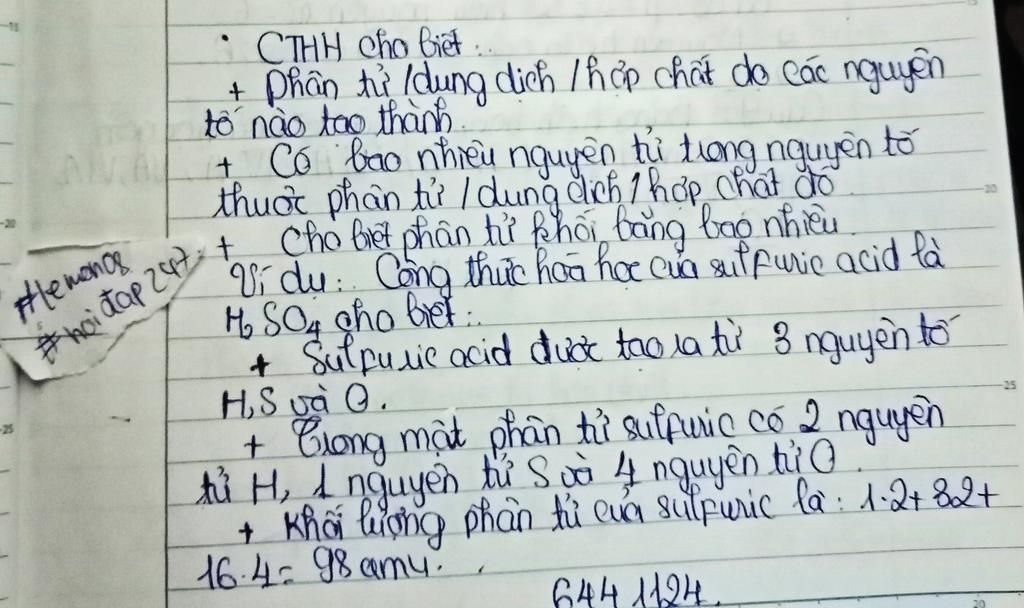 • CTHH cho biết:
+ Phân tử /dung dịch /hợp chất do các nguyên
tố nào tạo thành.
+ Có bao nhiêu nguyên tử trong nguyên tố
thuộc phân tử /dung dịch /hợp chất đó.
+ Cho biết phân tử khối bằng bao nhiêu.
Ví dụ: Công thức hoá học của sulfuric acid là
H₂SO₄ cho biết:
+ Sulfuric acid được tạo ra từ 3 nguyên tố
H, S và O.
+ Trong một phân tử sulfuric có 2 nguyên
tử H, 1 nguyên tử S và 4 nguyên tử O.
+ Khối lượng phân tử của sulfuric là: 1.2+32+
16.4= 98 amu.
6441124.
#hỏi đáp 247